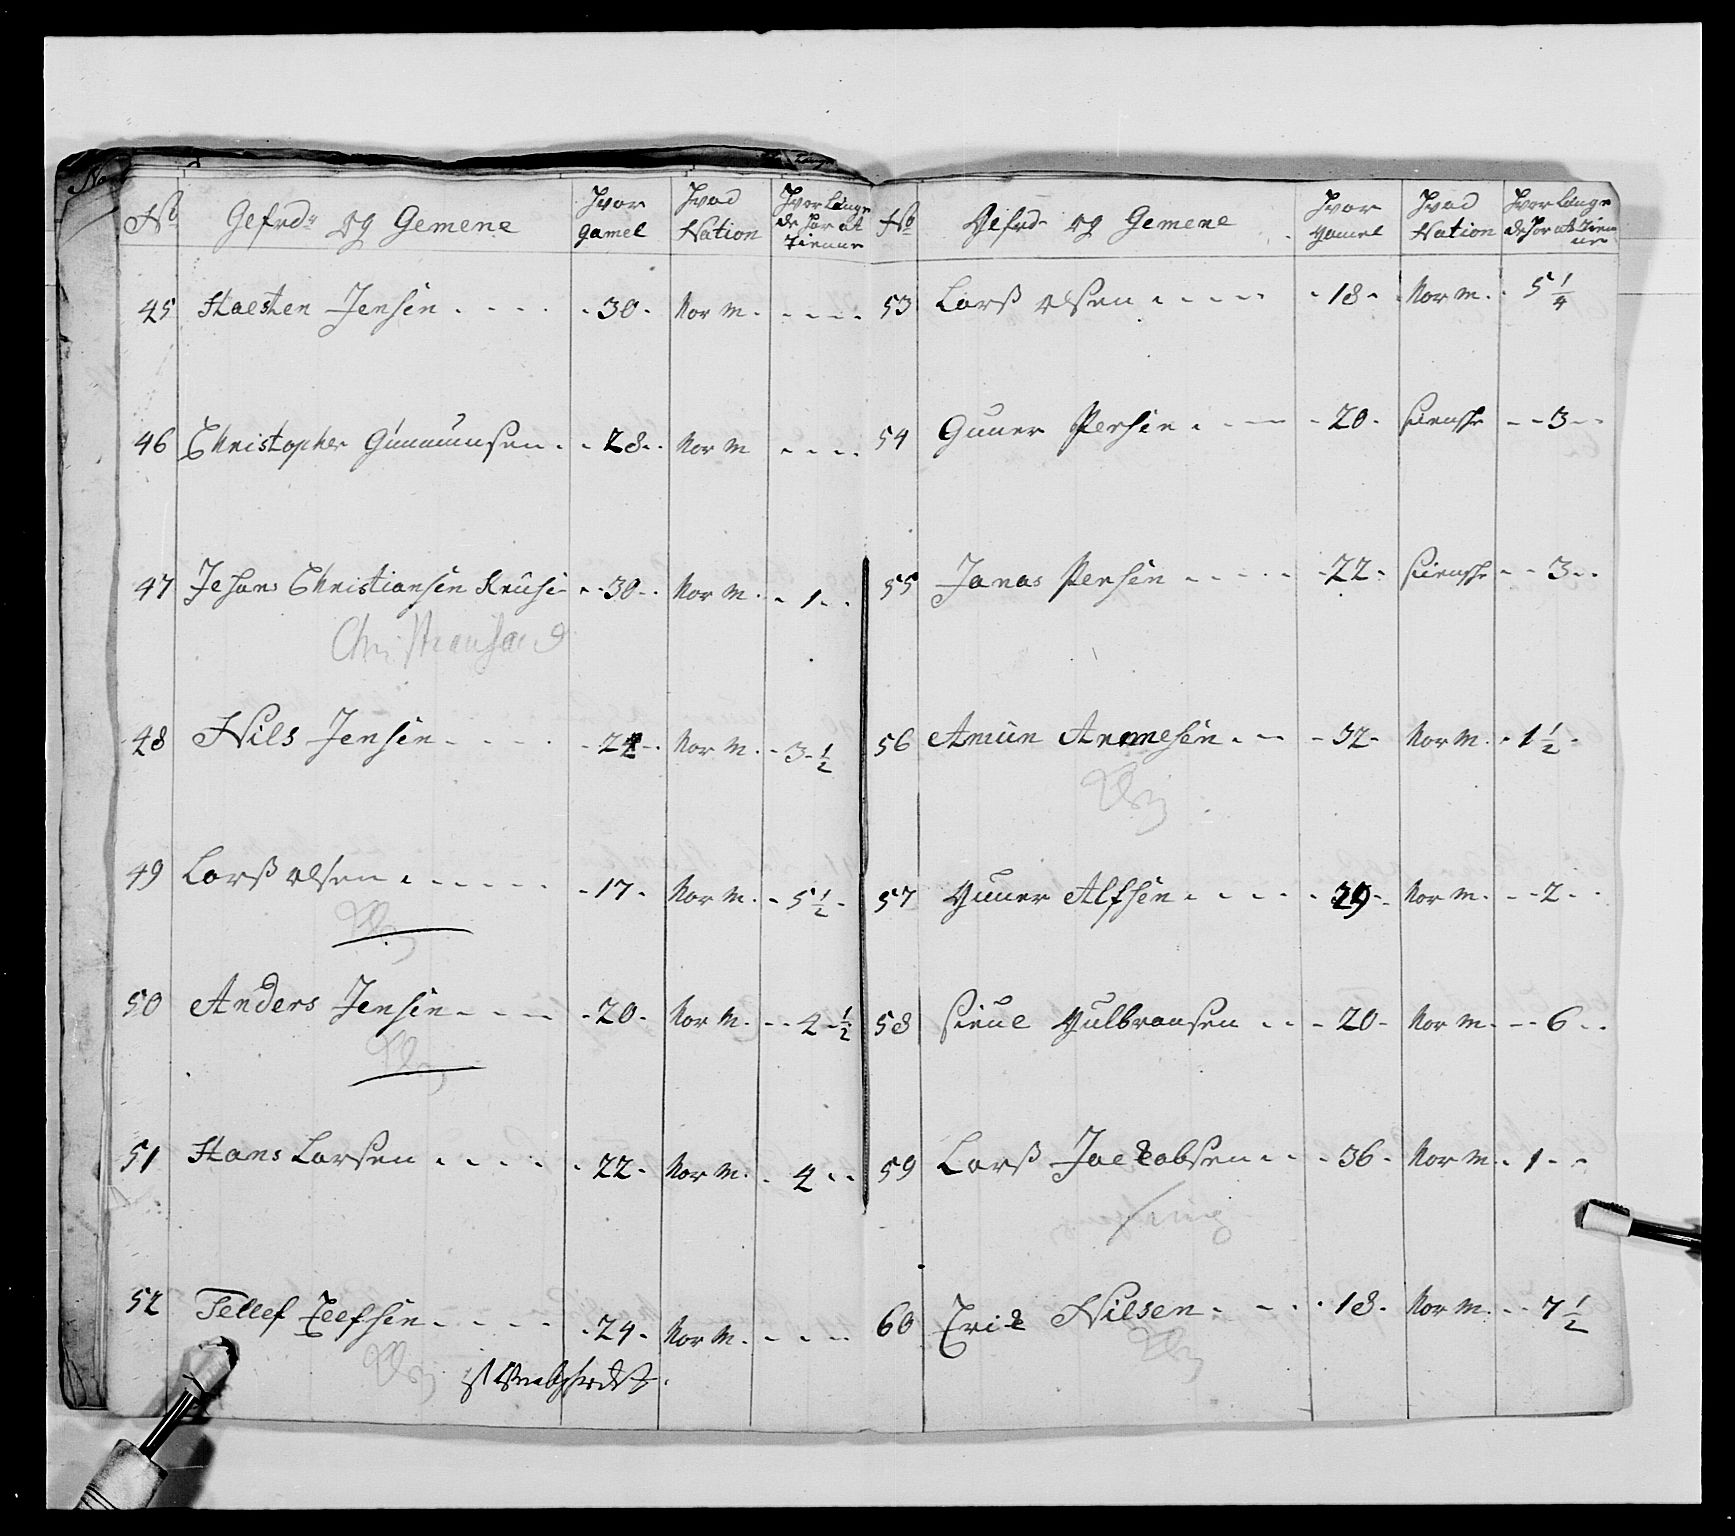 No Gefrdr og Gemene Hvor gamel Hvad Nation Hvor Længe de har at Tienne
45 Haesten Jensen 30 Nor M.
46 Christopher Gunnunsen 28 Nor M
47 Johans Christiansen Kruse 30 Nor M. 1
Christiansand
48 Nils Jensen 24 Nor M. 3 1/2
49 Larsß olsen 17 Nor M. 5 1/2
50 Anders Jensen 20 Nor M. 4 1/2
51 Hans Larsen 22 Nor M. 4
52 Tellef Eelfsen 24 Nor M.
No Gefrdr og Gemene Hvor gamel Hvad Nation Hvor Længe de har at Tienne
53 Larß olsen 18 Nor M. 5 1/4
54 Guner Persen 20 Suenske 3
55 Jonas Persen 22 Suenske 3
56 Amun Anmesen 32 Nor M. 1 1/2
57 Guner Alfsen 29 Nor M. 2
58 Siuul Gulbransen 20 Nor M. 6
59 Larß Jackobsen 36 Nor M. 1
60 Erik Nilsen 18 Nor M. 7 1/2